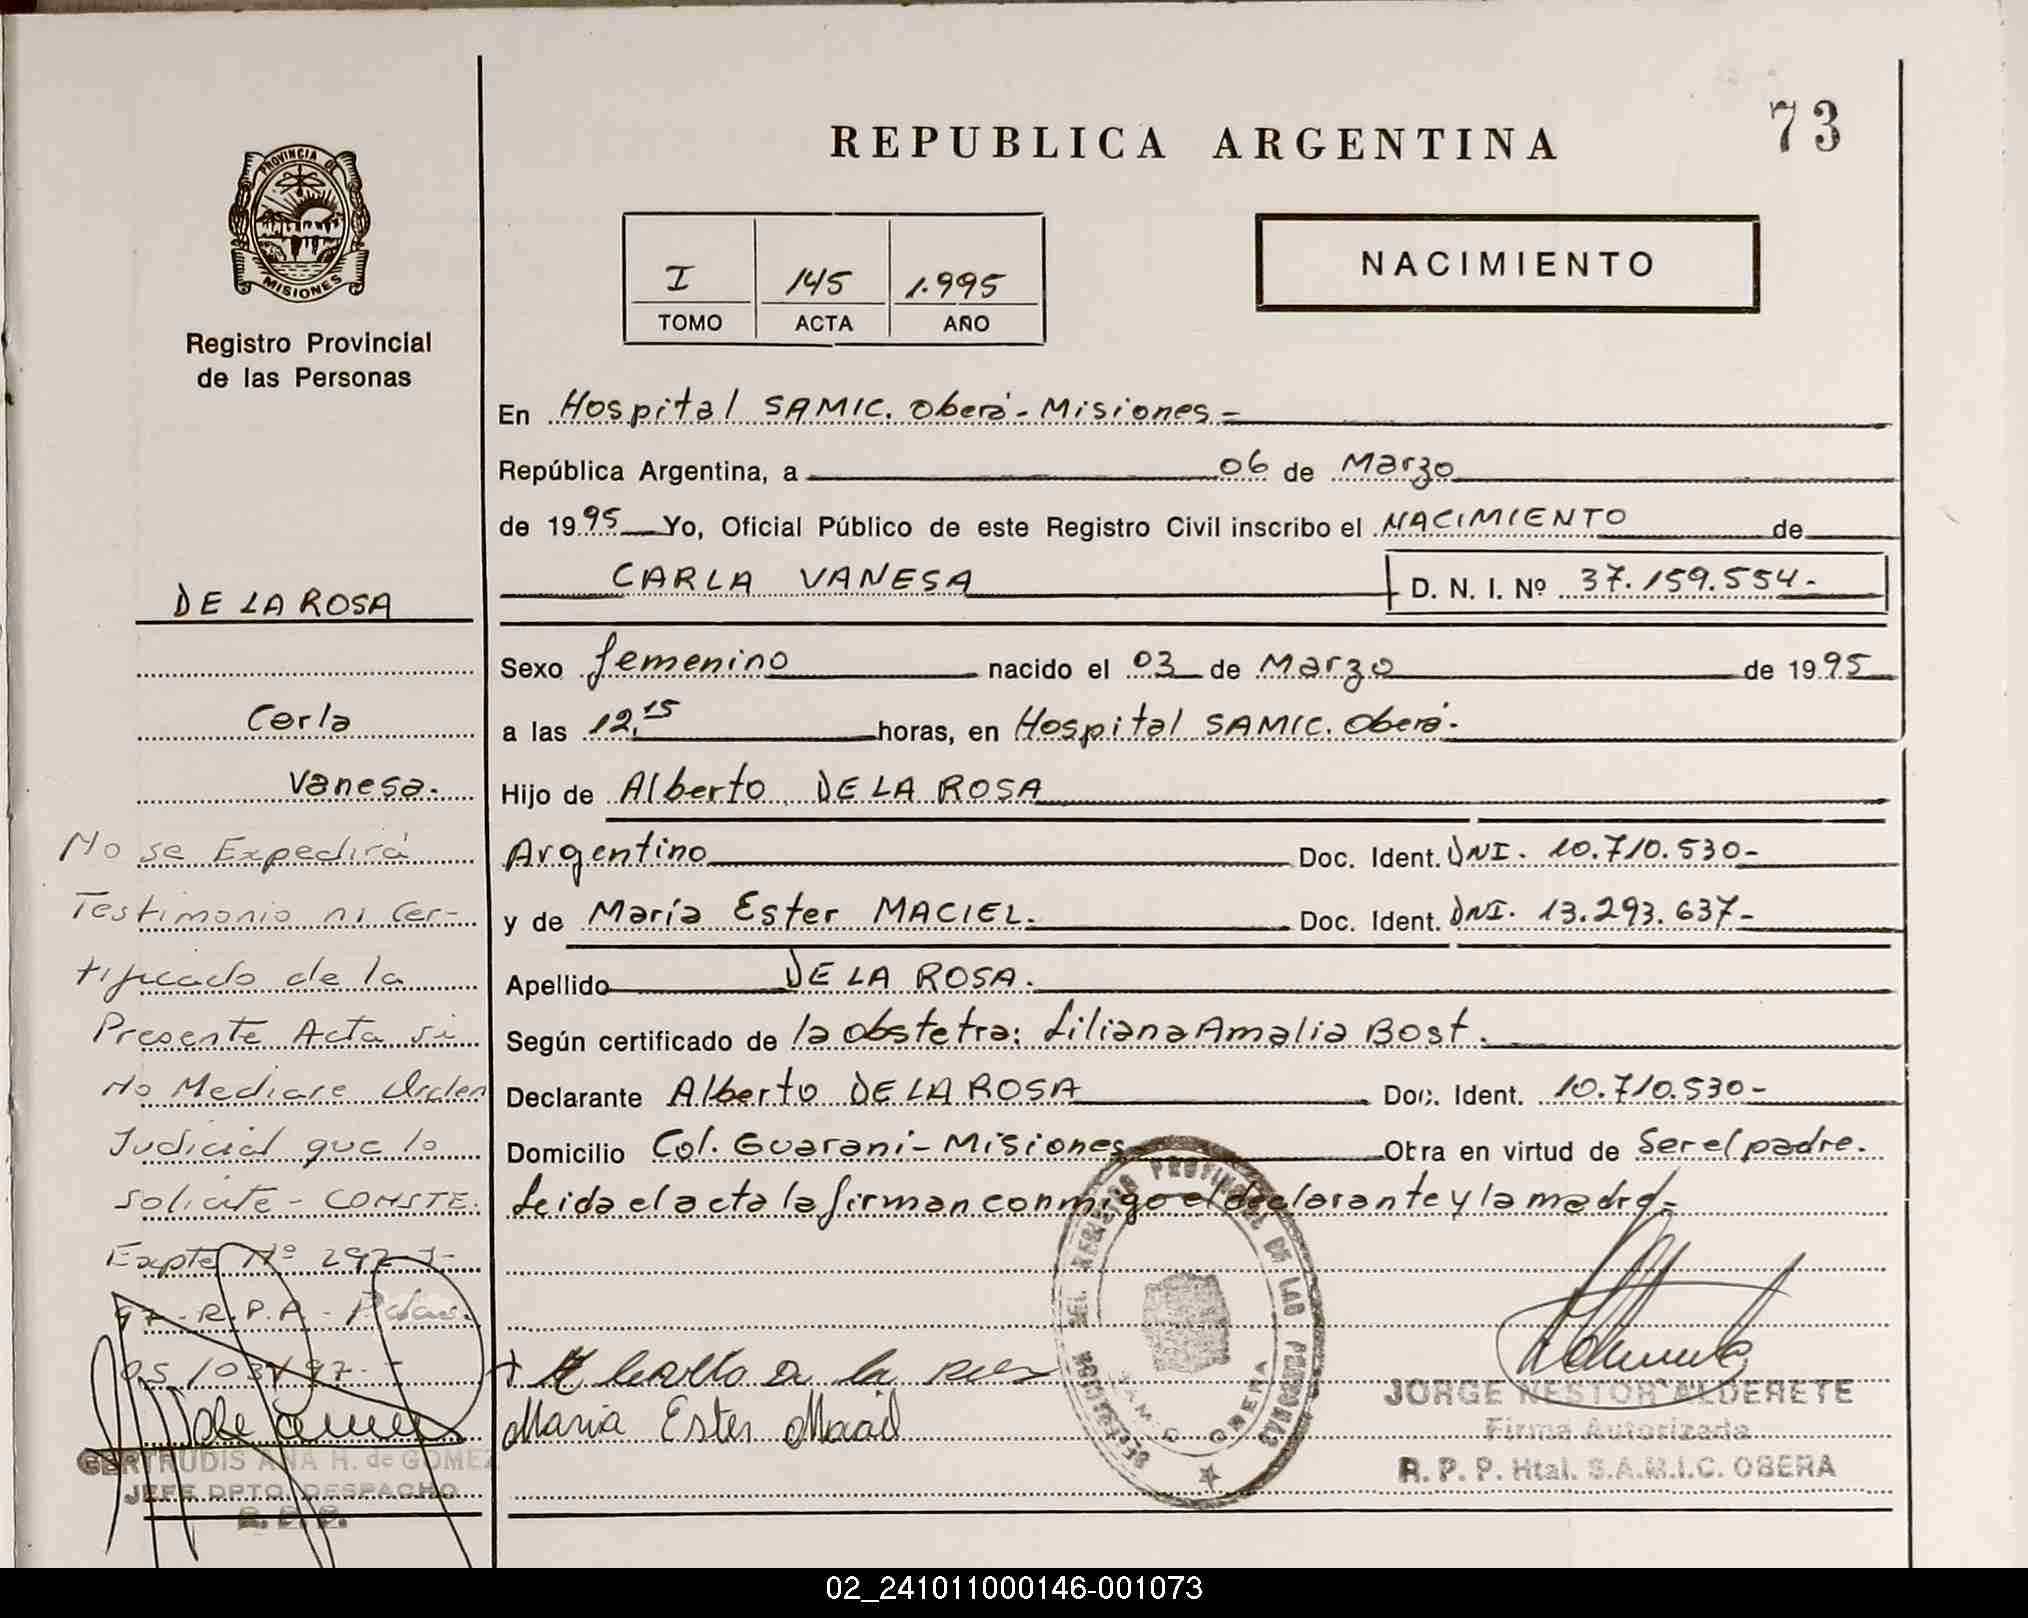 73
REPUBLICA ARGENTINA
PROVINCIA DE
MISIONES
Registro Provincial
de las Personas
I 145 1.995
TOMO ACTA AÑO
NACIMIENTO
En Hospital SAMIC. Oberá - Misiones -
República Argentina, a 06 de Marzo
de 1995 Yo, Oficial Público de este Registro Civil inscribo el NACIMIENTO de
CARLA VANESA D. N. I. Nº 37.159.554.-
Sexo femenino nacido el 03 de Marzo de 1995
a las 12,15 horas, en Hospital SAMIC. Oberá.-
Hijo de Alberto DE LA ROSA
Argentino Doc. Ident. DNI. 10.710.530-
y de María Ester MACIEL. Doc. Ident. DNI. 13.293.637-
Apellido DE LA ROSA.
Según certificado de la obstetra: Liliana Amalia Bost.
Declarante Alberto DE LA ROSA Doc. Ident. 10.710.530-
Domicilio Col. Guaraní - Misiones Obra en virtud de Ser el padre.
Leida el acta la firman conmigo el declarante y la madre.-
DE LA ROSA
Carla
Vanesa.
No se Expedirá
Testimonio ni Cer-
tificado de la
Presente Acta si
No Mediare Orden
Judicial que lo
Solicite - CONSTE.
Expte Nº 292-1-
97-R.P.P.- Pdas.
05/03/97.-
GERTRUDIS ANA H. de GOMEZ
JEFE DPTO. DESPACHO
R. P. P.
Alberto de la
Maria Ester Maciel
REGISTRO PROVINCIAL DE LAS PERSONAS
OBERA
JORGE NESTOR ALDERETE
Firma Autorizada
R. P. P. Htal. S.A.M.I.C. OBERA
02_241011000146-001073